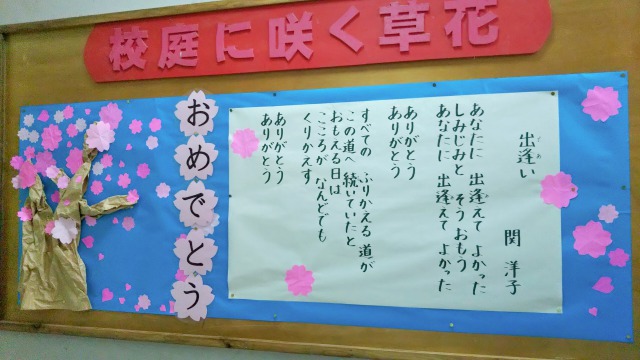 校庭に咲く草花
出逢い
であ
関 洋子
あなたに 出逢えて よかった
しみじみと そう おもう
あなたに 出逢えて よかった
ありがとう
ありがとう
すべての ふりかえる 道が
この道へ 続いていたと
おもえる日は
こころが なんどでも
くりかえす
ありがとう
ありがとう
おめでとう